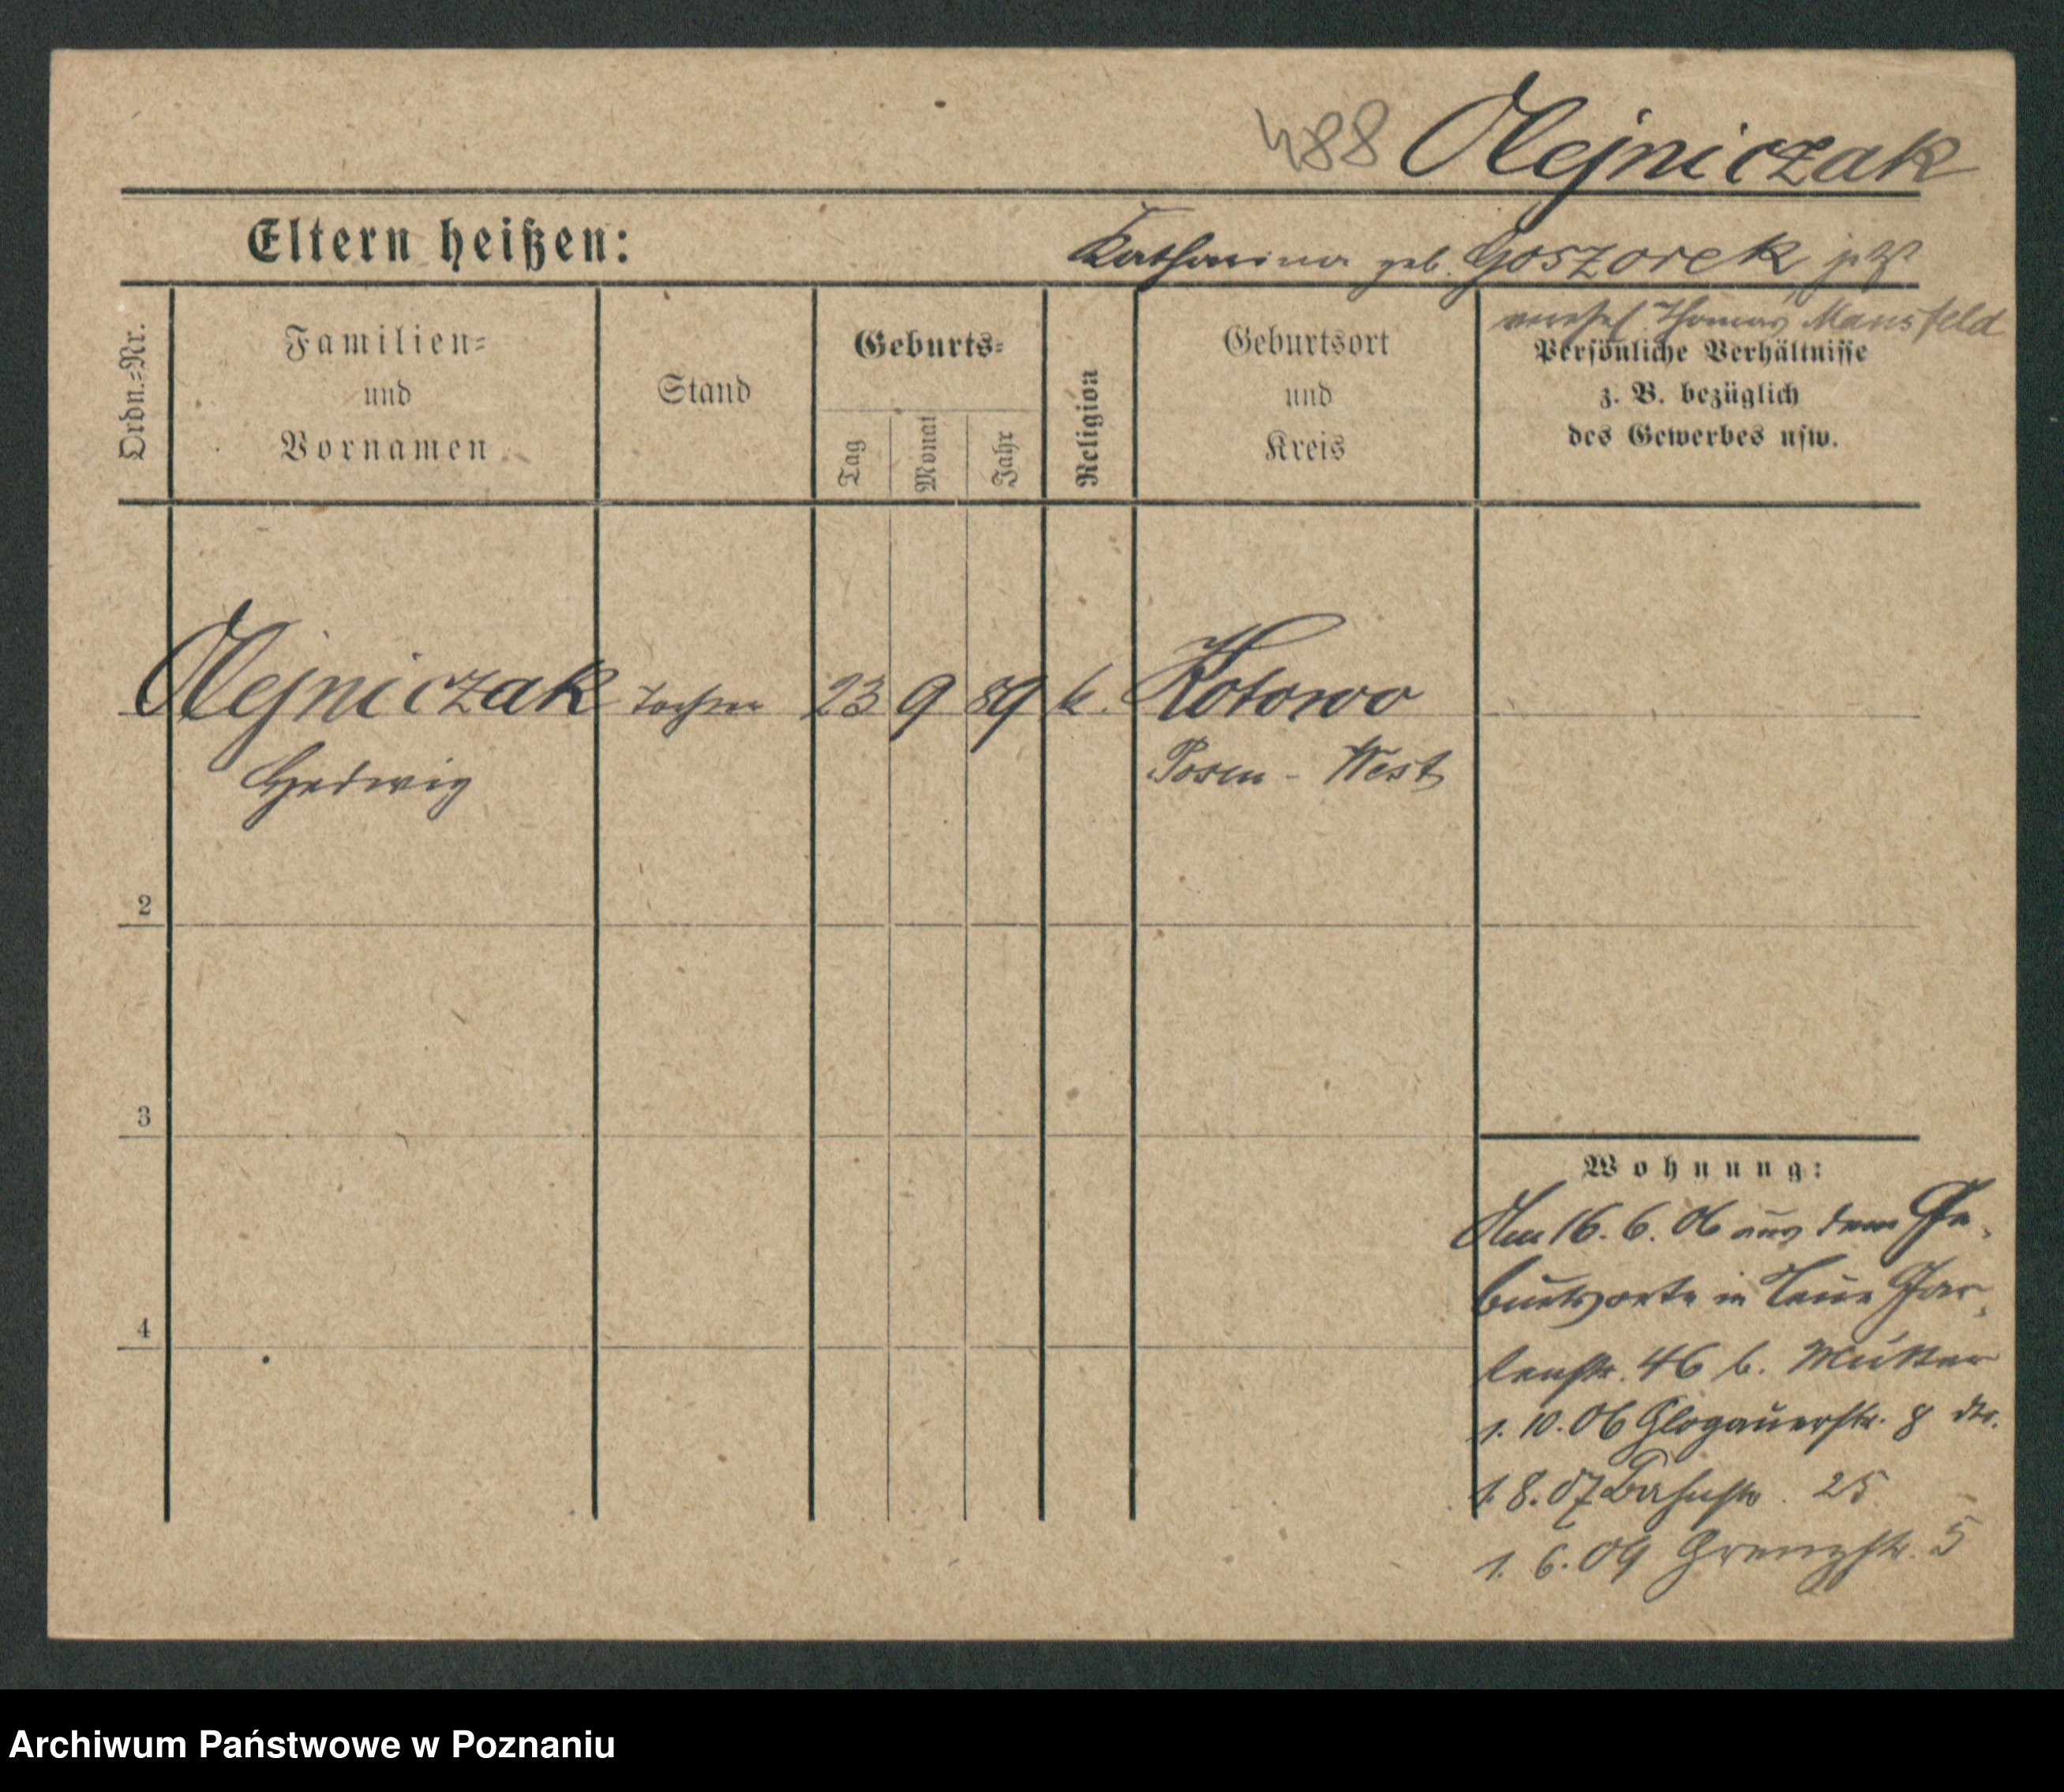 488 Olejniczak
Eltern heißen: Katharina geb. Goszorek jetzt
verehel. Thomas Mansfeld
Ordn.-Nr.
Familien-
und
Vornamen
Stand
Geburts-
Tag
Monat
Jahr
Religion
Geburtsort
und
Kreis
Persönliche Verhältnisse
z. B. bezüglich
des Gewerbes usw.
Olejniczak Tochter 23 9 89 k. Kotowo
Hedwig Posen - West
2
3
4
Wohnung:
Am 16. 6. 06 aus dem Ge-
burtsorte in Neue Gar-
tenstr. 46 b. Mutter
1. 10. 06 Glogauerstr. 8 dto.
1. 8. 07 Bahnstr. 25
1. 6. 09 Grenzstr. 5
Archiwum Państwowe w Poznaniu